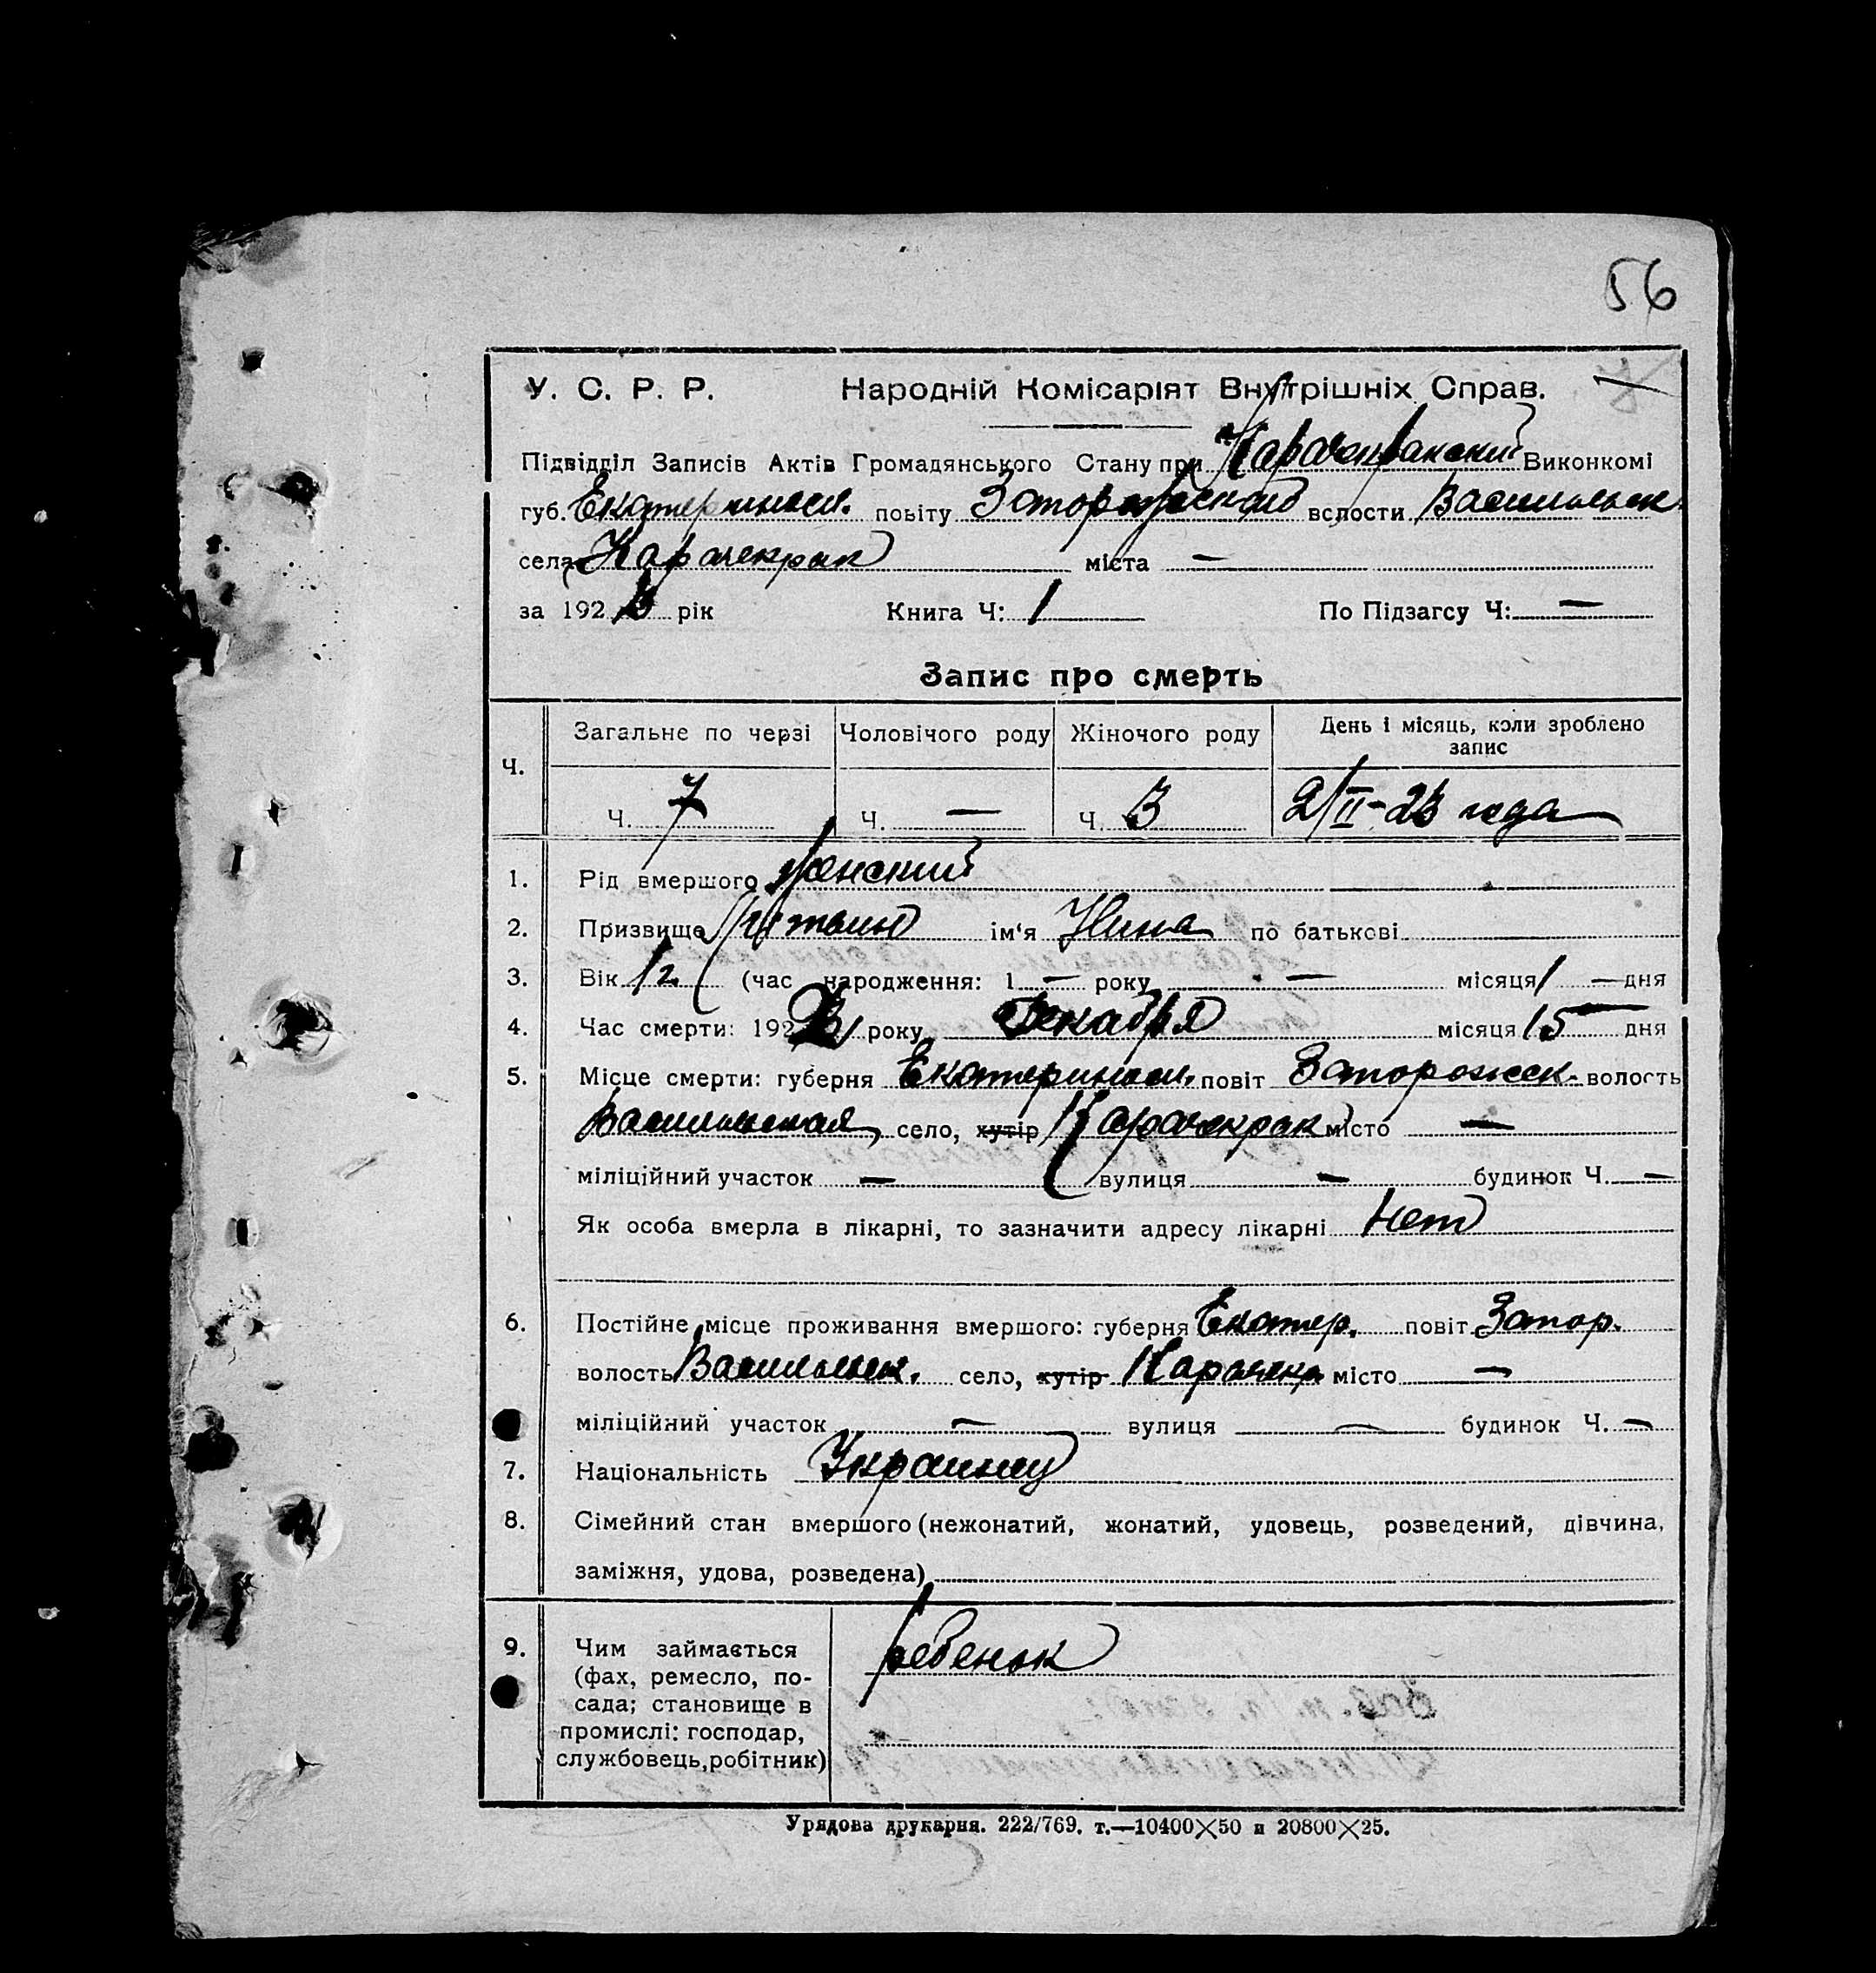 56
У. С. Р. Р. Народній Комісаріят Внутрішніх Справ.
Підвідділ Записів Актів Громадянського Стану при Карачекракский Виконкомі
губ. Екатериносл. повіту Запорожский волости Васильевск.
села Карачекрак міста —
за 1923 рік Книга Ч: 1 По Підзагсу Ч: —
Запис про смерть
Ч. Загальне по черзі Чоловічого роду Жіночого роду День і місяць, коли зроблено запис
Ч. 7 Ч. — Ч. 3 2/II-23 года
1. Рід вмершого женский
2. Призвище ім'я Нина по батькові
3. Вік 1/2 (час народження: 1 — року — місяця — дня
4. Час смерти: 192 року Декабря місяця 15 дня
5. Місце смерти: губерня Екатериносл. повіт Запорожск. волость
Васильевская, село, хутір Карачекрак місто —
міліційний участок — вулиця — будинок Ч. —
Як особа вмерла в лікарні, то зазначити адресу лікарні нет
6. Постійне місце проживання вмершого: губерня Екатер. повіт Запор.
волость Васильевск. село, хутір Карачекр місто —
міліційний участок — вулиця — будинок Ч. —
7. Національність Украинец
8. Сімейний стан вмершого (нежонатий, жонатий, удовець, розведений, дівчина,
заміжня, удова, розведена)
9. Чим займається ребенок
(фах, ремесло, по-
сада; становище в
промислі: господар,
службовець, робітник)
Урядова друкарня. 222/769. т.—10400×50 и 20800×25.